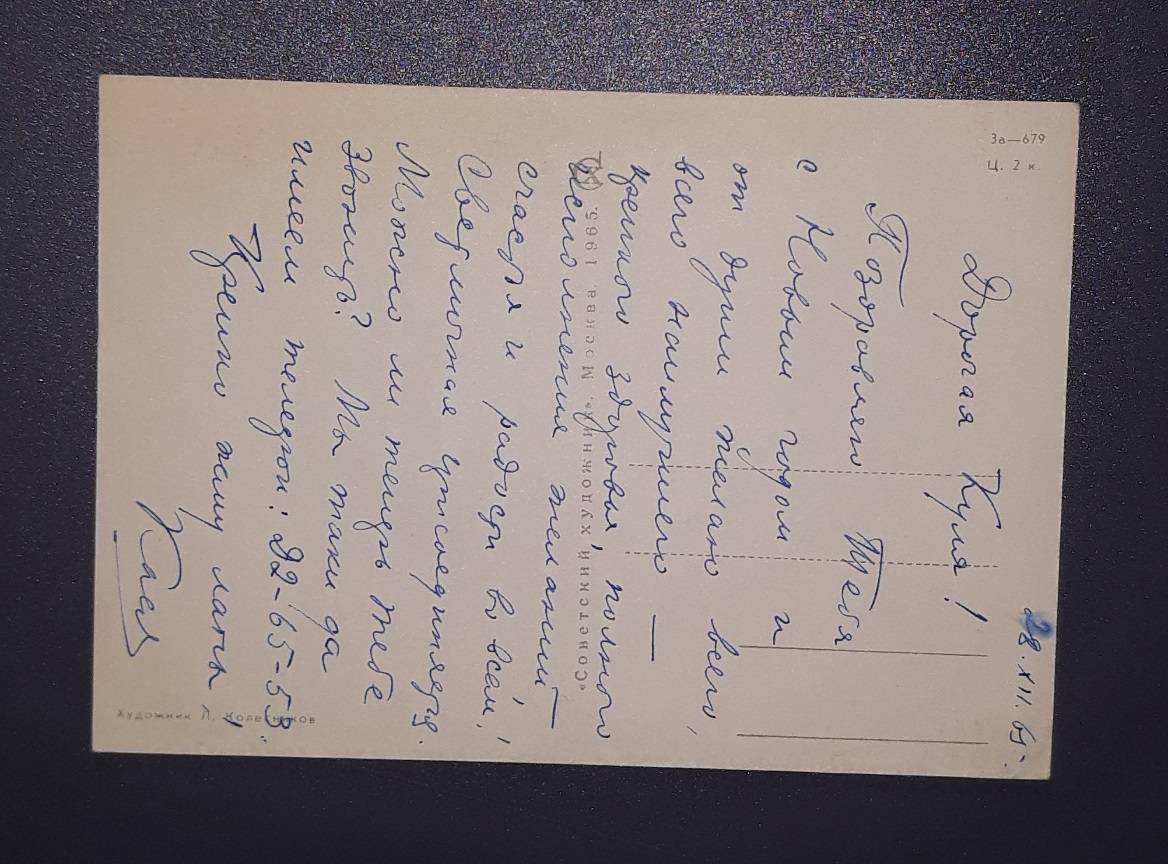 28.XII.65.
Дорогая Куля!
Поздравляю Тебя
с Новым годом и
от души желаю всего,
всего наилучшего —
крепкого здоровья, полного
исполнения желаний,
счастья и радости во всём!
Светличная присоединяется.
Можно ли теперь тебе
звонить? Мы таки да
имеем телефон: Д2-65-53.
Крепко жму лапы,
За—679
Ц. 2 к.
«Советский художник». Москва. 1965.
Художник Л. Колесников